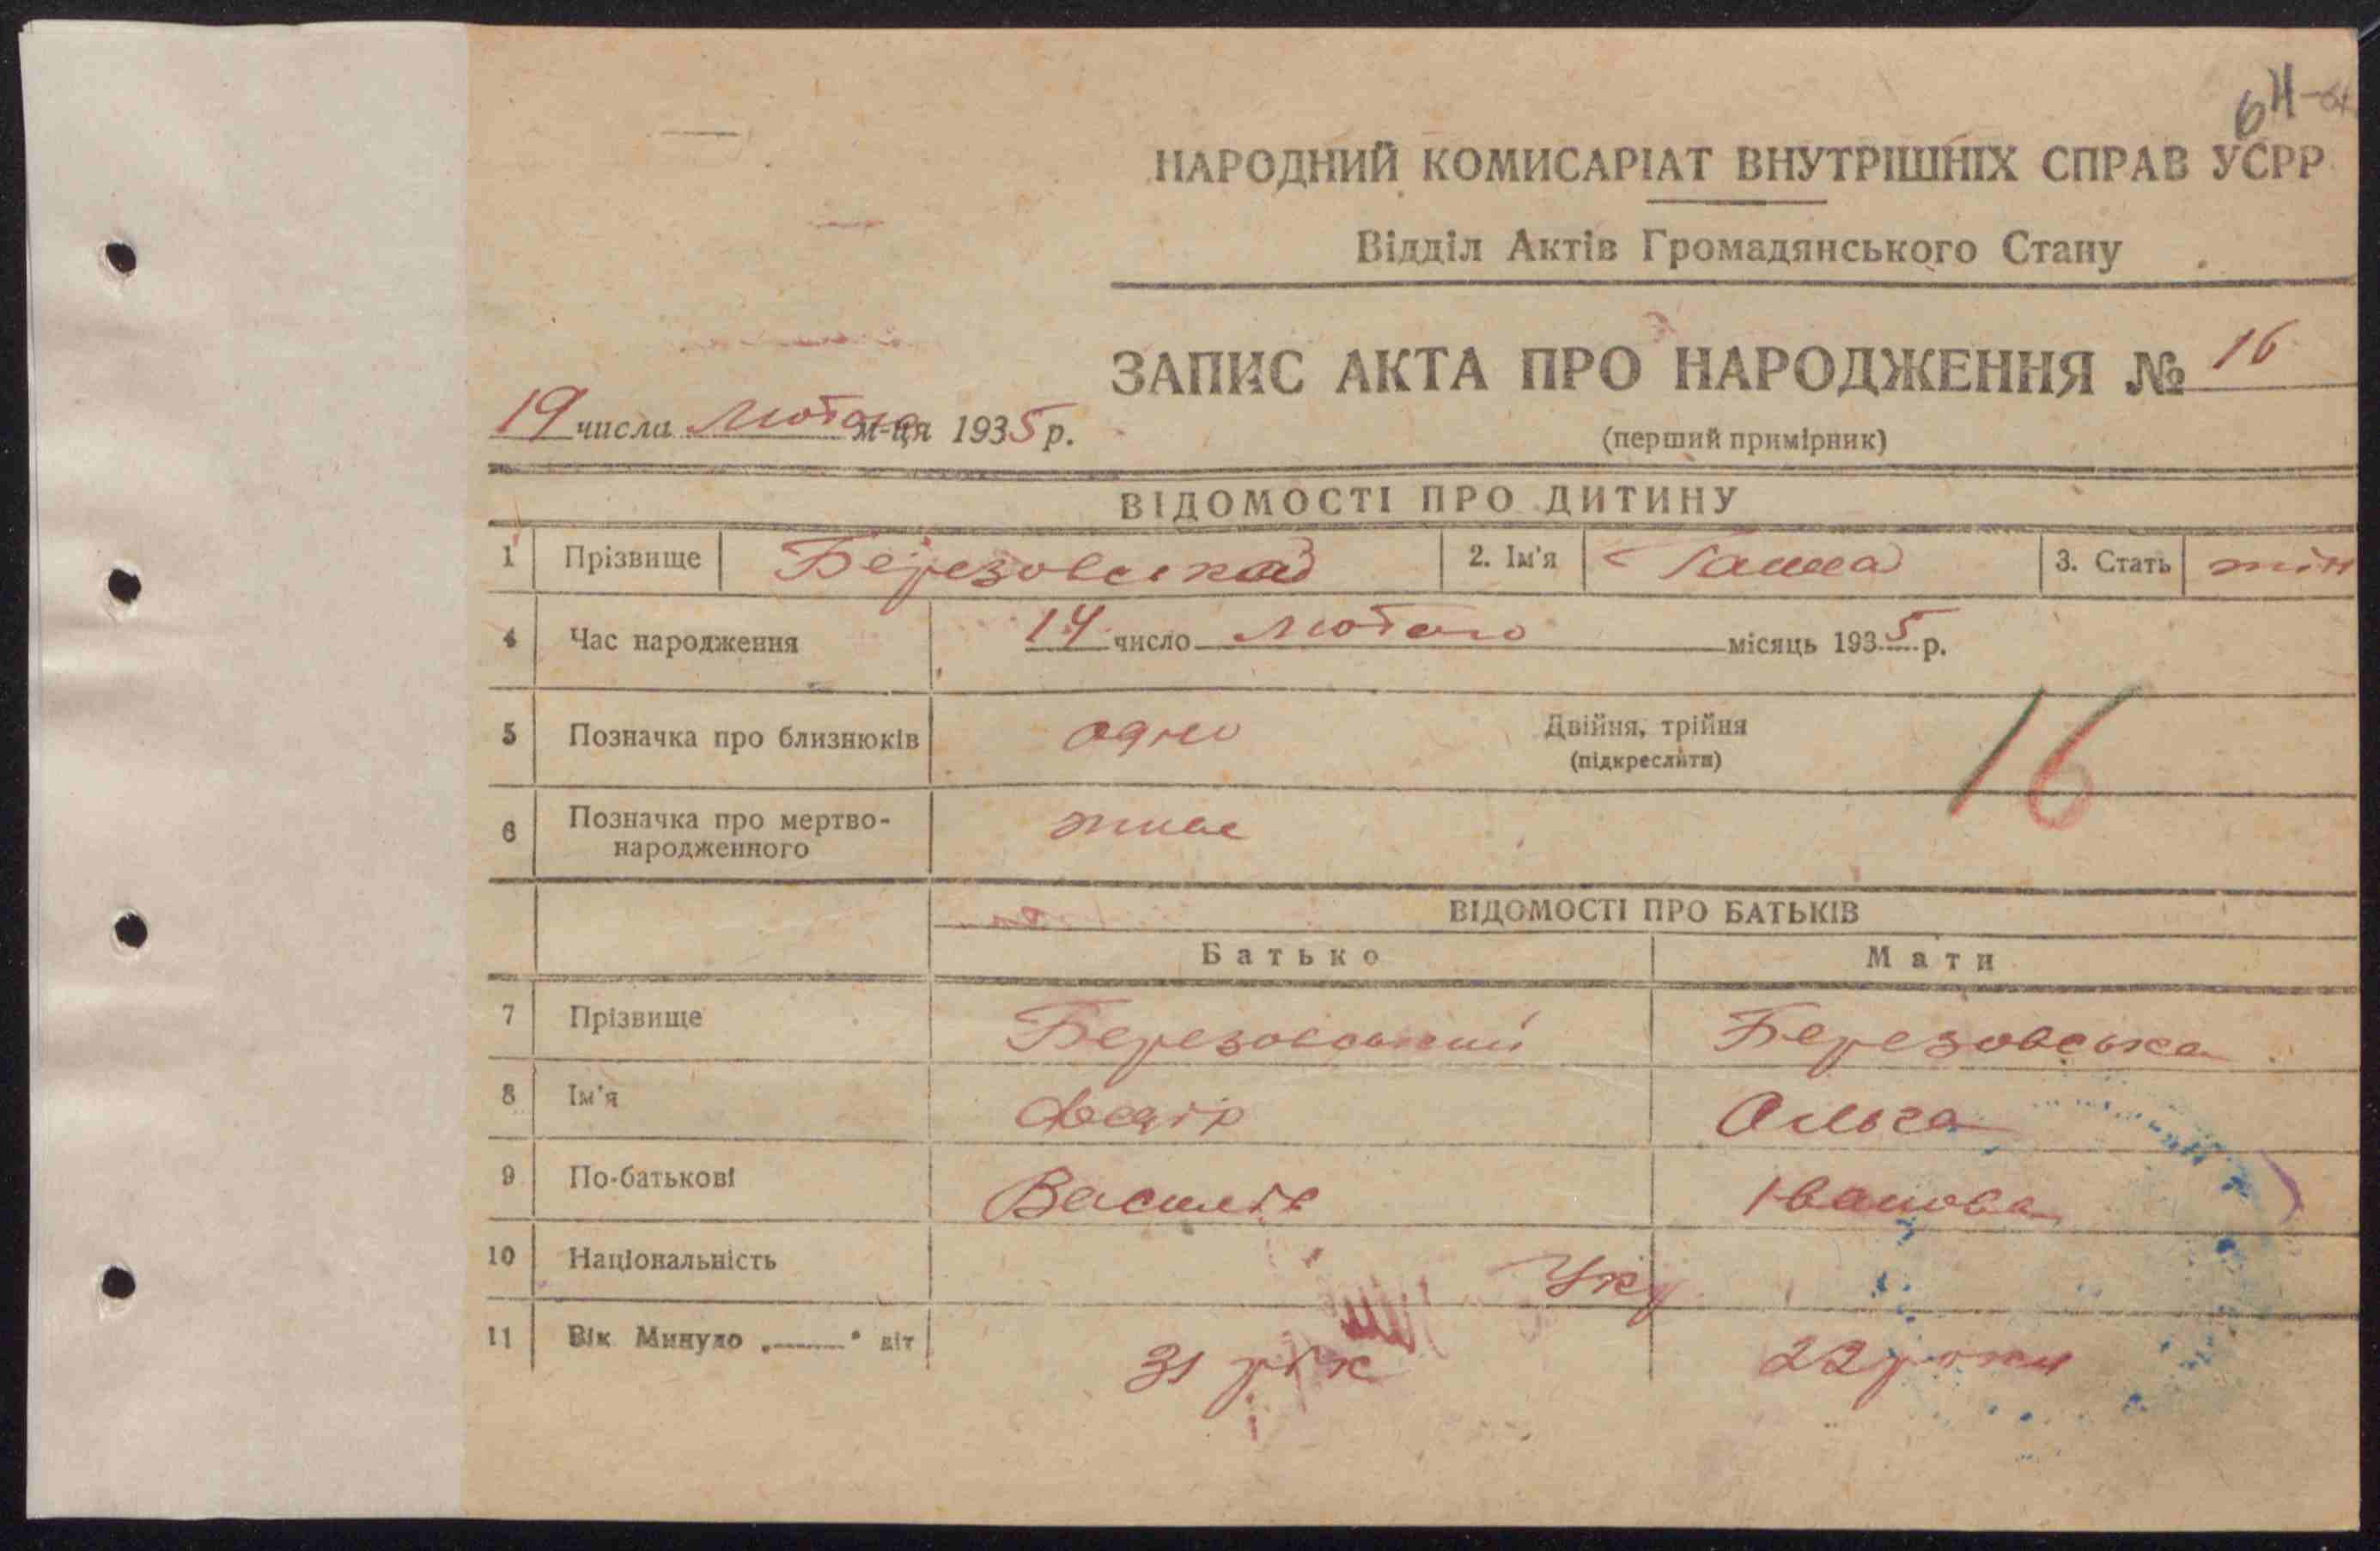 64
НАРОДНИЙ КОМИСАРІАТ ВНУТРІШНІХ СПРАВ УСРР
Відділ Актів Громадянського Стану
ЗАПИС АКТА ПРО НАРОДЖЕННЯ № 16
19 числа Лютого м-ця 1935 р.
(перший примірник)
ВІДОМОСТІ ПРО ДИТИНУ
1 Прізвище Березовська 2. Ім'я Ганна 3. Стать жін
4 Час народження 14 число Лютого місяць 1935 р.
5 Позначка про близнюків одно Двійня, трійня
(підкреслити)
16
6 Позначка про мертво-
народженного живе
ВІДОМОСТІ ПРО БАТЬКІВ
Батько Мати
7 Прізвище Березовський Березовська
8 Ім'я Федір Ольга
9 По-батькові Василів Іванова
10 Національність Укр
11 Вік Минуло „——" літ 31 рік 22 роки